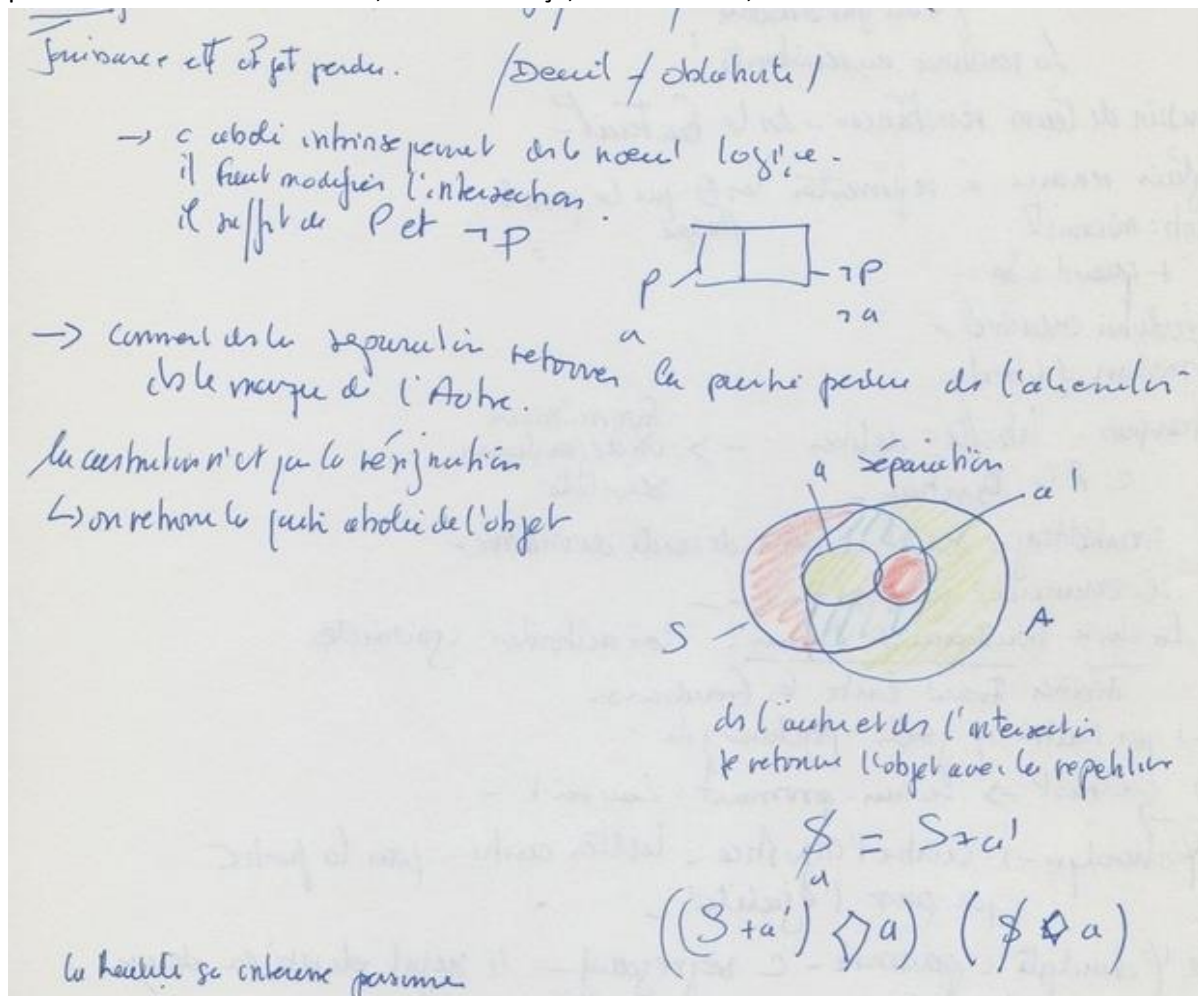 Jouissance et objet perdu. /Deuil / oblativité/
→ c aboli intrinsequement ds le nœud logique.
il faut modifier l'intersection.
il suffit de P et ¬P
P ¬P
a ¬a
→ Comment ds la separation retrouver la partie perdue de l'aliénation
ds le manque de l'Autre.
la castration n'est pas la résignation
↳ on retrouve la partie abolie de l'objet
a separation a'
S A
ds l'autre et ds l'intersection
je retrouve l'objet avec la repetition
$ = S+a'
a
((S+a') ◇ a) ($ ◇ a)